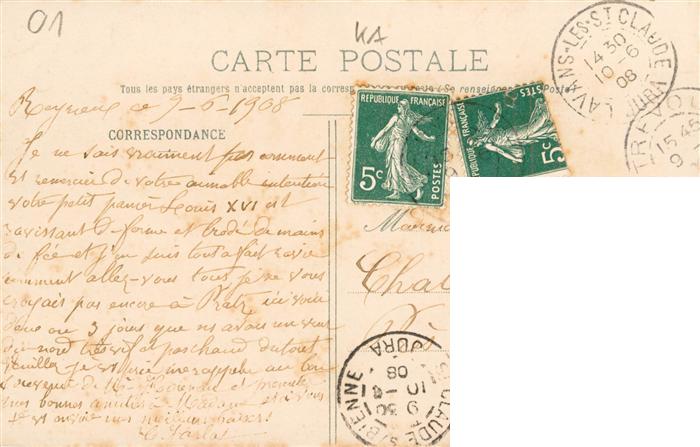 01
KA
CARTE POSTALE
Tous les pays étrangers n'acceptent pas la corresp (Se renseigner Poste)
Reyrieux ce 9-6-1908
CORRESPONDANCE
Je ne sais vraiment pas comment
et remercier de votre aimable intention
votre petit panier Louis XVI est
ravissant de forme et brodé de mains
de fée et j'en suis tout à fait ravie
comment allez-vous tous je ne vous
croyais pas encore à ici voici
deux ou 3 jours que ns avons un vent
du nord très vif et pas chaud du tout
veuillez je prie me rappeler au bon
souvenir de Mr et
mes bonnes amitiés à Madame et à vous
et mes meilleurs baisers
RÉPUBLIQUE FRANÇAISE
5c
POSTES
RÉPUBLIQUE FRANÇAISE
5c
POSTES
LAVANS-LES-ST CLAUDE
14 30
10 -6
08
JURA
TREVO
15 45
9
Cha
ST CLAUDE S/ BIENNE
9 30
10 -6
08
JURA